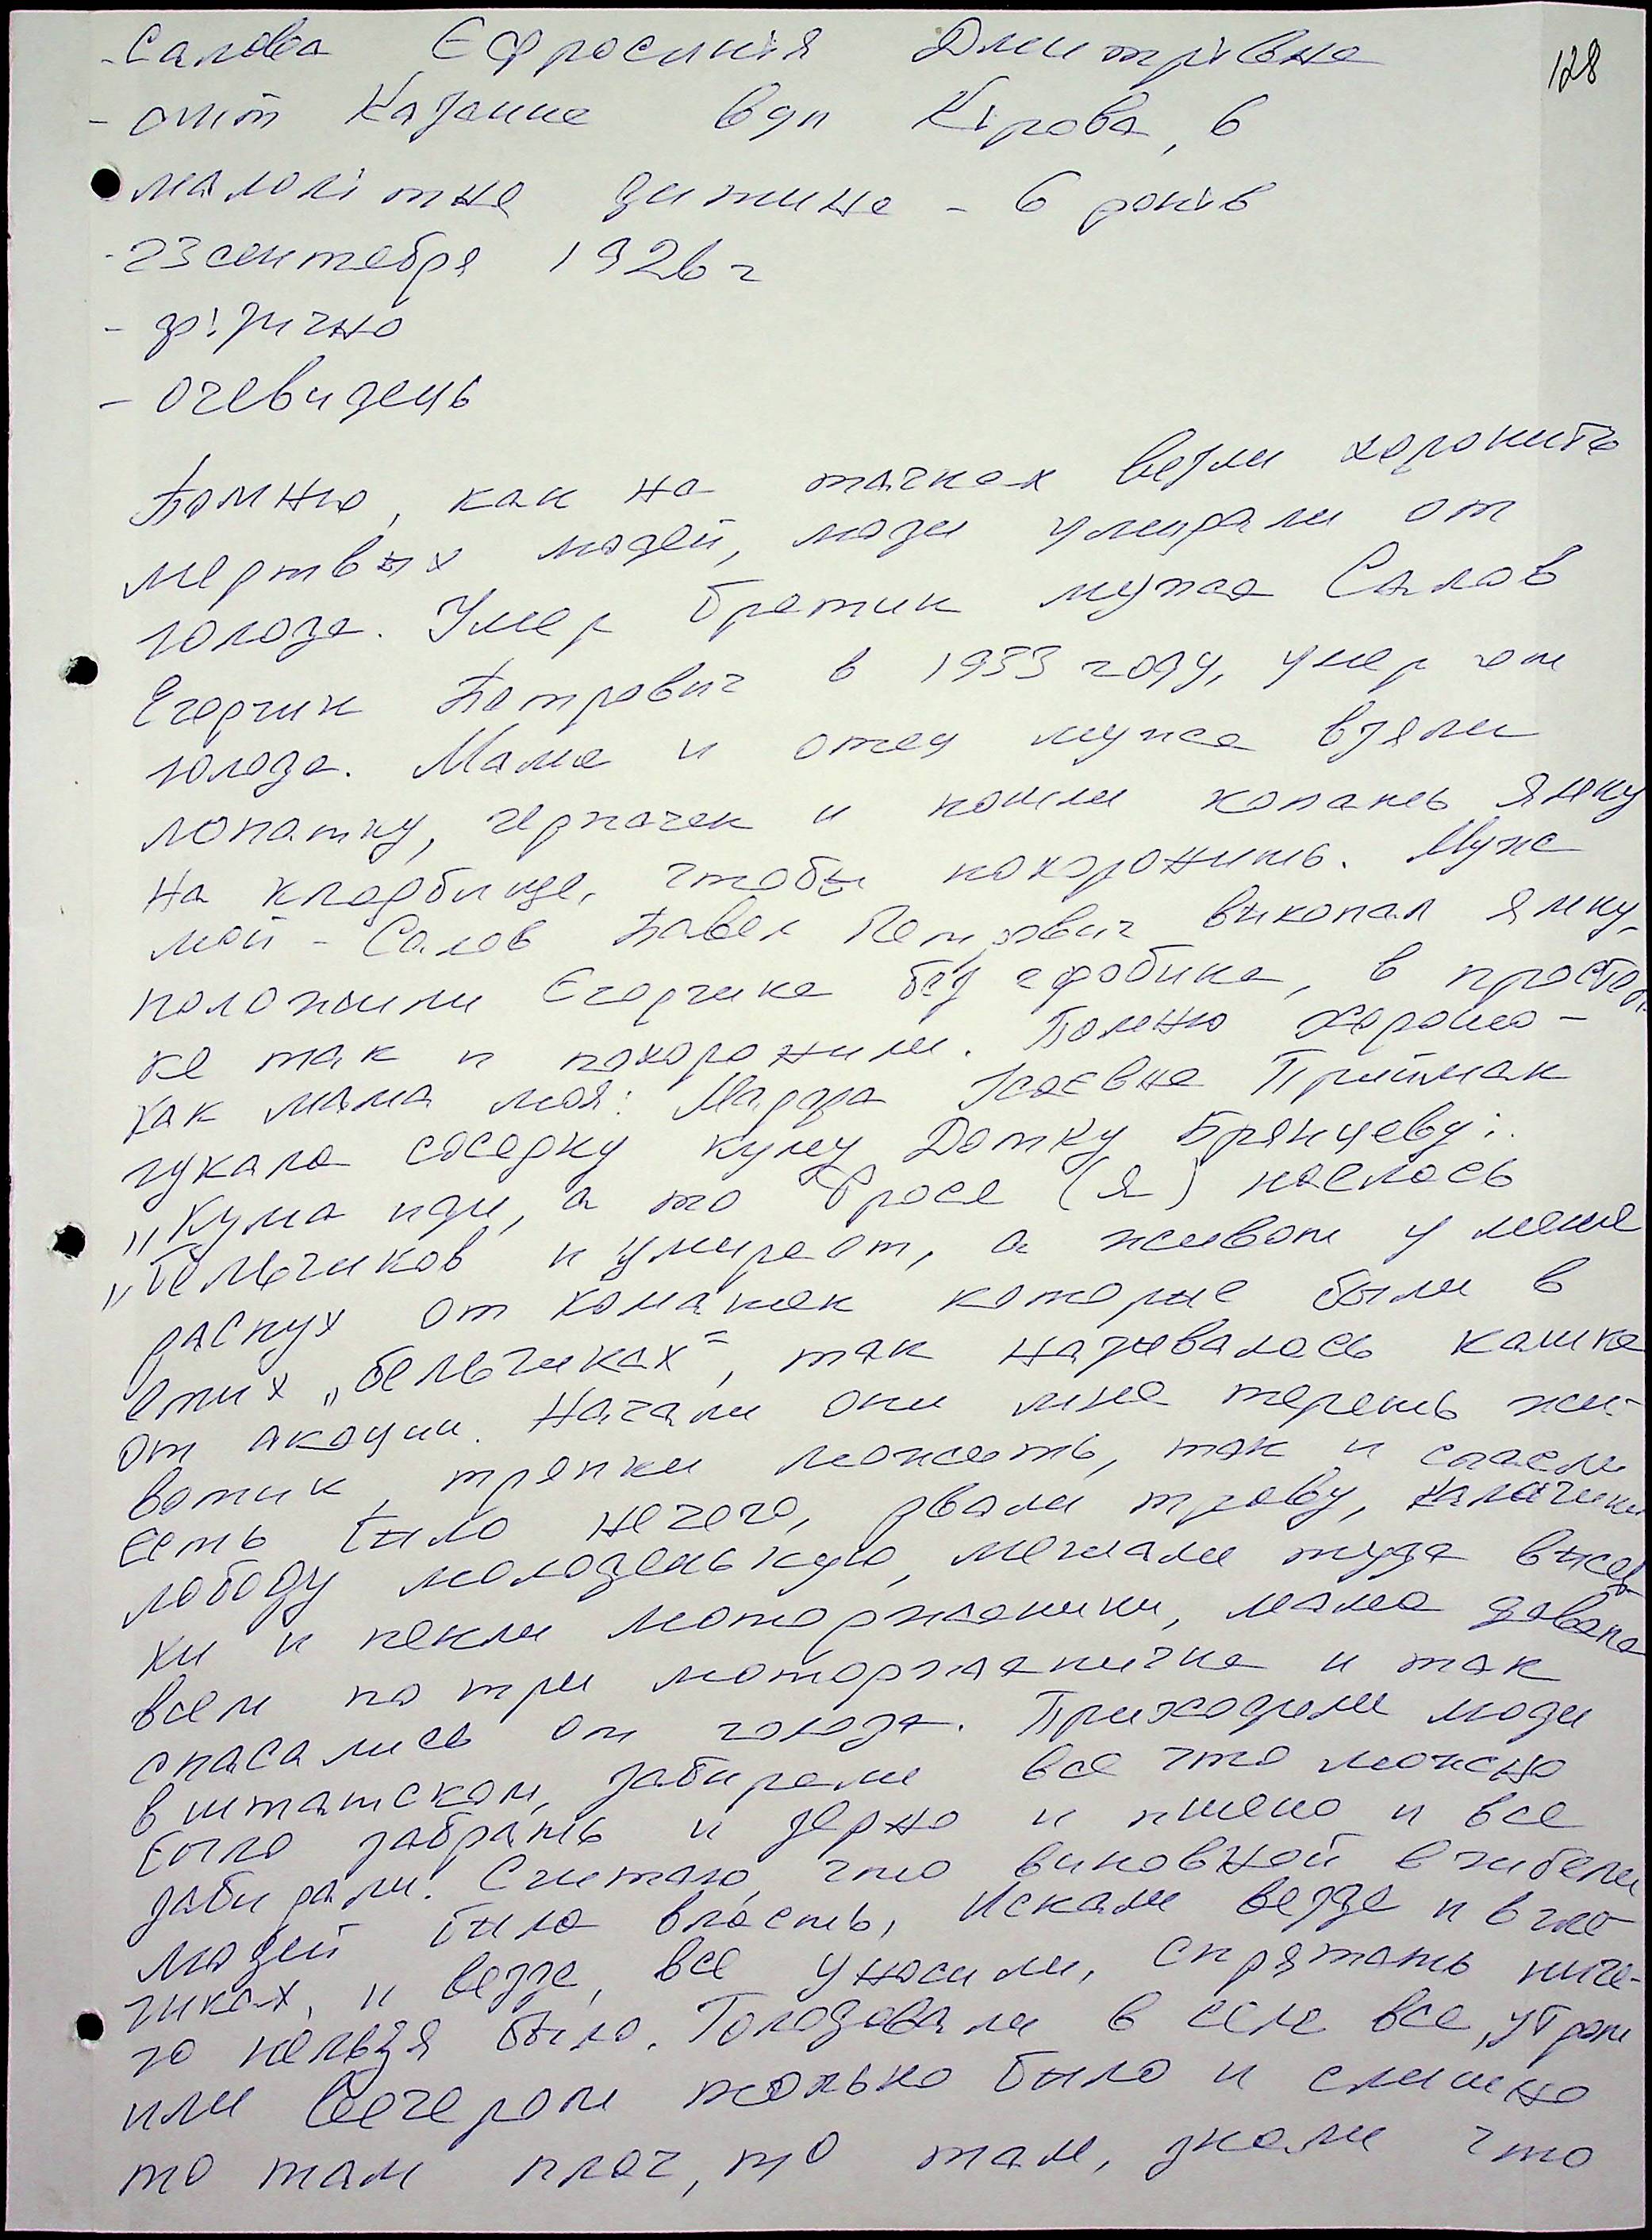 128
- Салова Єфросинія Дмитрівна
- смт Казанка вул Кірова, 6
- малолітня дитина - 6 років
- 23 сентебря 1926 г
- фізично
- очевидець
Помню, как на тачках везли хоронить
мертвых людей, люди умирали от
голода. Умер братик мужа Салов
Егорчик Петрович в 1933 году, умер от
голода. Мама и отец мужа взяли
лопатку, черпачек и пошли копать ямку
на кладбище, чтобы похоронить. Муж
мой - Салов Павел Петрович викопал ямку,
положили Єгорчика без гробика, в простын
ке так и похоронили. Помню хорошо -
как мама моя: Мадра Ісаєвна Приймак
гукала соседку куму Домку Брянцеву:
"Кума иди, а то Фрося (я) наелась
"бельчиков" и умирает, а живот у меня
распух от комашек которые были в
етих "бельчиках", так називалась кашка
от акации. Начали они мне тереть жи-
вотик, тряпки ложить, так и спасли
есть било нечего, рвали траву, калачики
лободу молоденькую, мешали туда висев
ки и пекли моторжаники, мама давала
всем по три моторжаничка и так
спасались от голода. Приходили люди
в штатском, забирали все что можно
было забрать и зерно и пшено и все
забирали. Считаю, что виновной в гибели
людей била власть, искали везде и в гле-
чиках, и везде, все уносили, спрятать ниче-
го нельзя было. Голодовали в селе все, утром
или вечером только было и слишно
то там плач, то там, знали что